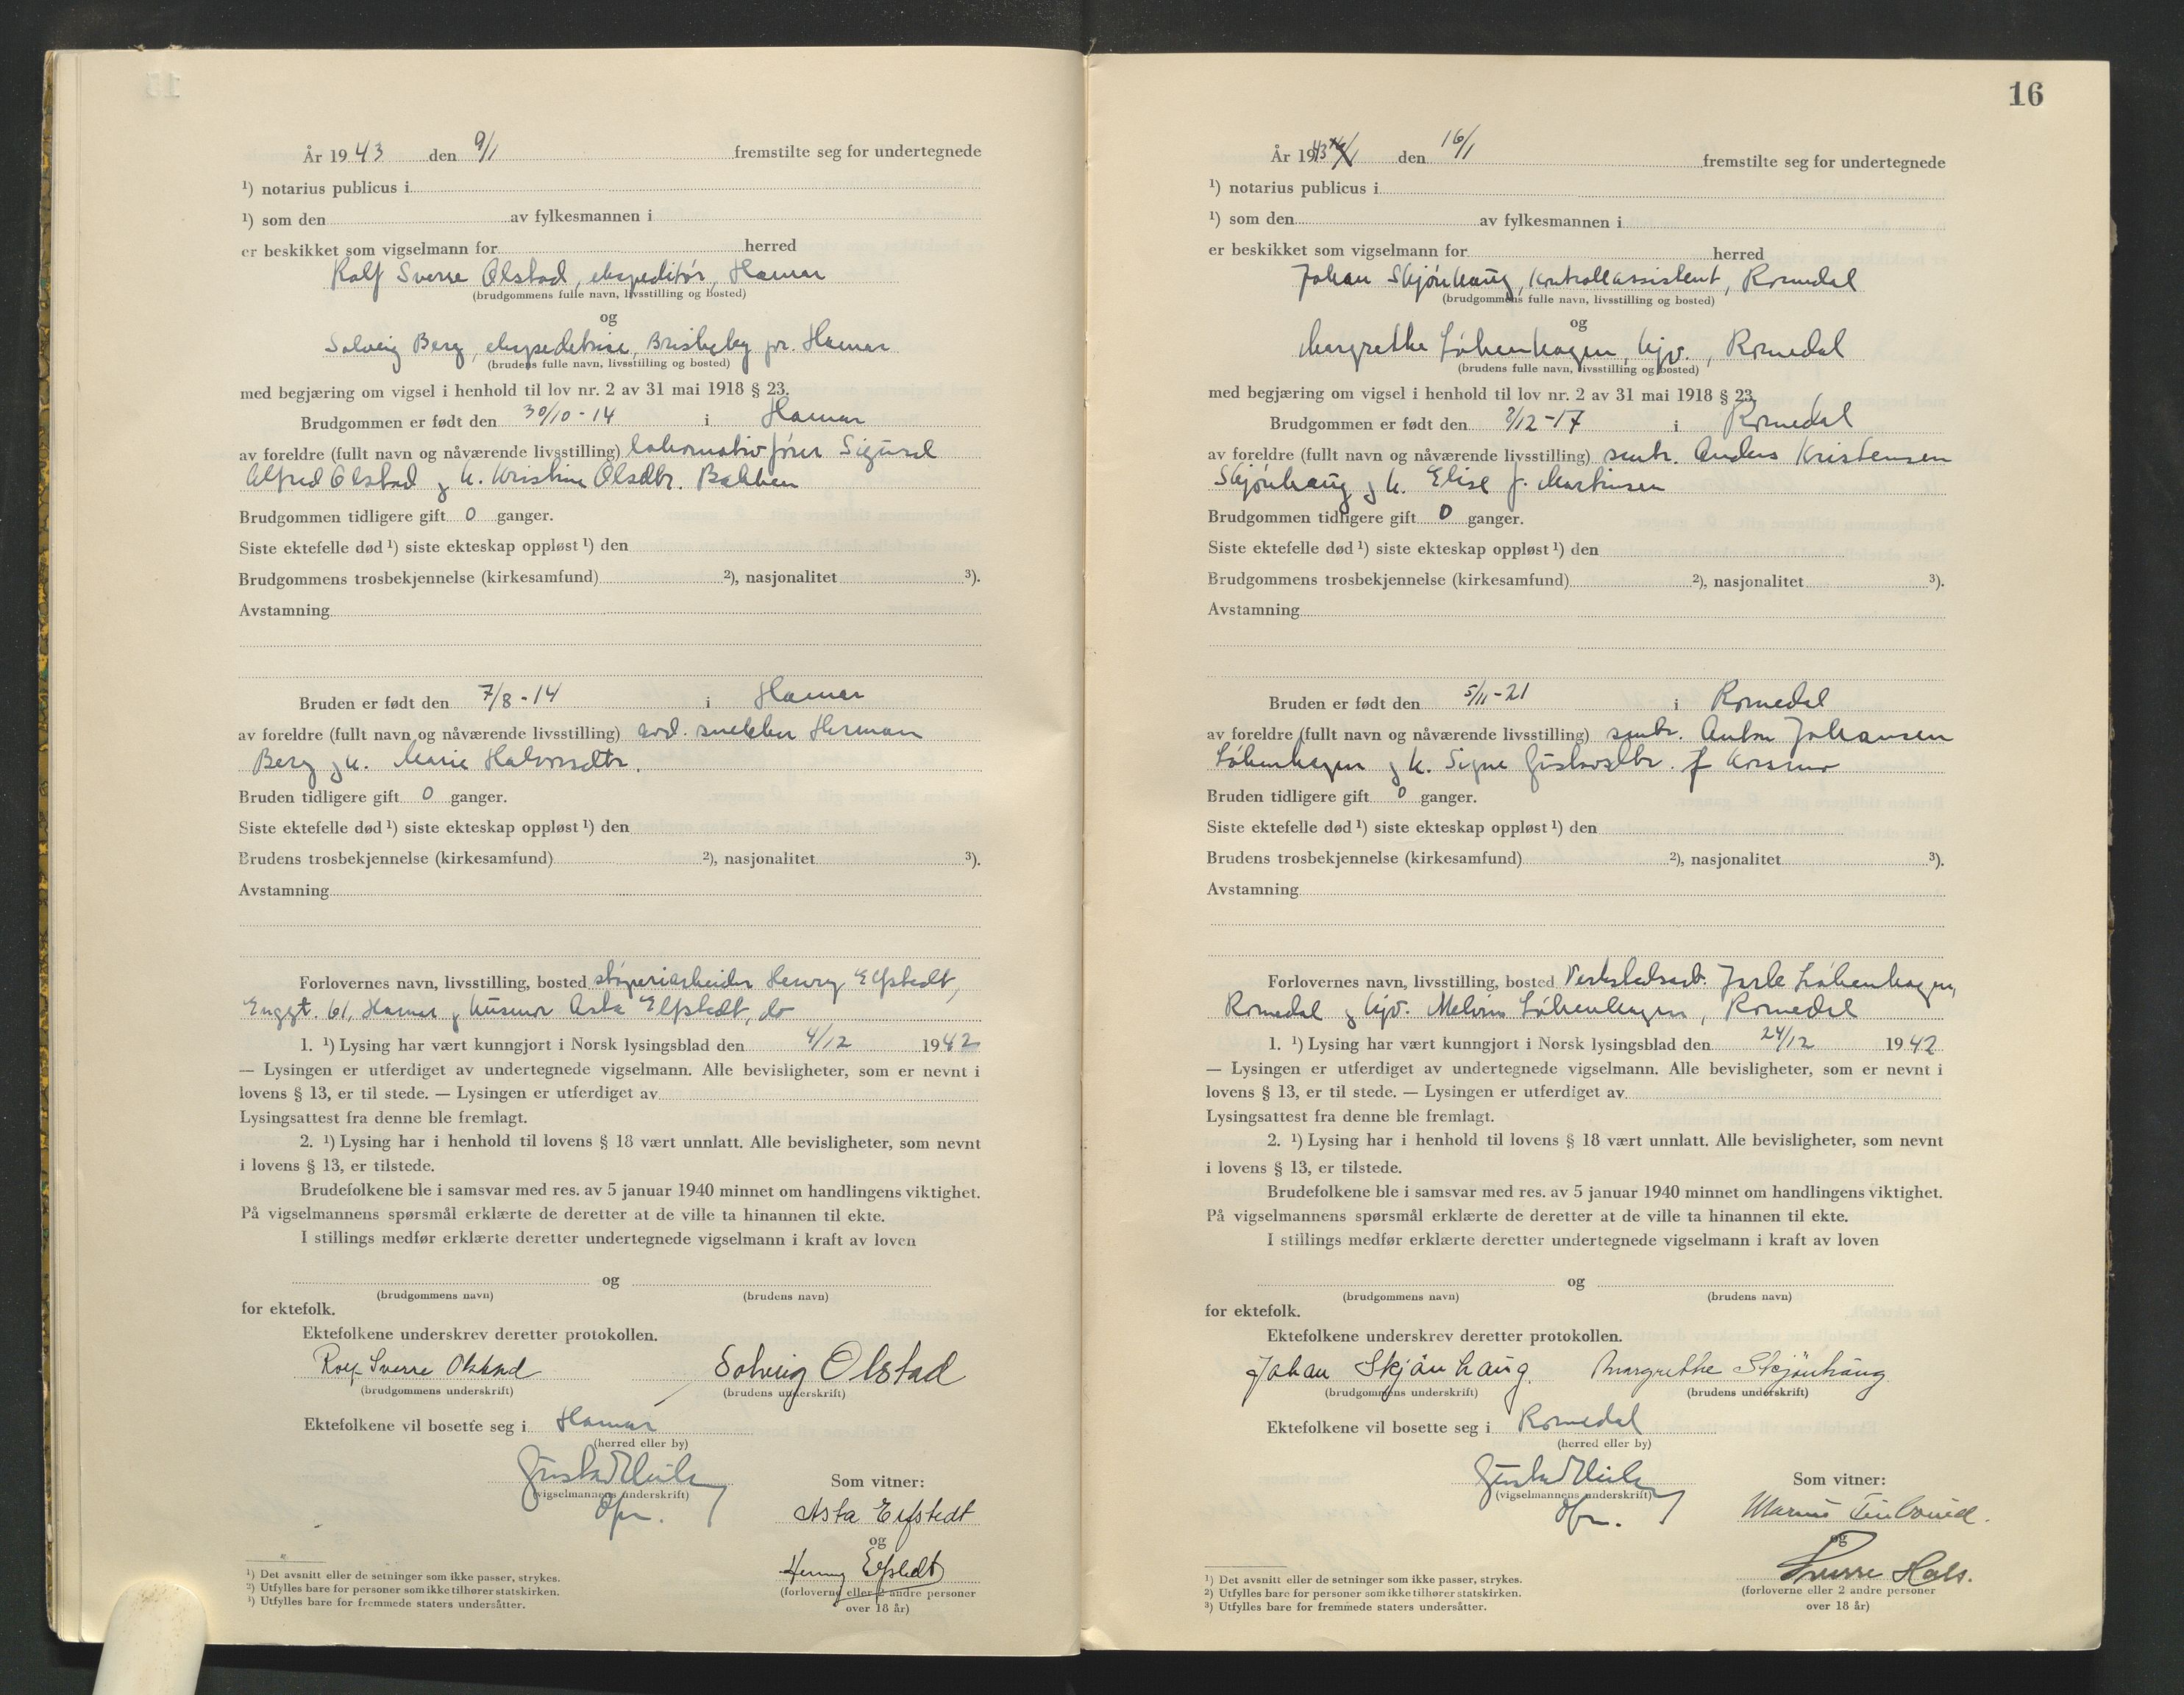 År 1943 den 9/1 fremstilte seg for undertegnede
¹) notarius publicus i
¹) som den av fylkesmannen i
er beskikket som vigselmann for herred
Rolf Sverre Olstad, ekspeditør, Hamar
(brudgommens fulle navn, livsstilling og bosted)
og
Solveig Berg, ekspedetrise, Briskeby pr. Hamar
(brudens fulle navn, livsstilling og bosted)
med begjæring om vigsel i henhold til lov nr. 2 av 31 mai 1918 § 23.
Brudgommen er født den 30/10-14 i Hamar
av foreldre (fullt navn og nåværende livsstilling) lokomotivfører Sigurd
Alfred Olstad og h. Kristine Olsdtr. Bakken
Brudgommen tidligere gift 0 ganger.
Siste ektefelle død ¹) siste ekteskap oppløst ¹) den
Brudgommens trosbekjennelse (kirkesamfund) ²), nasjonalitet ³).
Avstamning
Bruden er født den 7/8-14 i Hamar
av foreldre (fullt navn og nåværende livsstilling) avd. snekker Herman
Berg og h. Marie Halvorsdtr.
Bruden tidligere gift 0 ganger.
Siste ektefelle død ¹) siste ekteskap oppløst ¹) den
Brudens trosbekjennelse (kirkesamfund) ²), nasjonalitet ³).
Avstamning
Forlovernes navn, livsstilling, bosted støperiarbeider Henry Elfstedt,
Enggt. 61, Hamar og husmor Asta Elfstedt, do
1. ¹) Lysing har vært kunngjort i Norsk lysingsblad den 4/12 1942
— Lysingen er utferdiget av undertegnede vigselmann. Alle bevisligheter, som er nevnt i
lovens § 13, er til stede. — Lysingen er utferdiget av
Lysingsattest fra denne ble fremlagt.
2. ¹) Lysing har i henhold til lovens § 18 vært unnlatt. Alle bevisligheter, som nevnt
i lovens § 13, er tilstede.
Brudefolkene ble i samsvar med res. av 5 januar 1940 minnet om handlingens viktighet.
På vigselmannens spørsmål erklærte de deretter at de ville ta hinannen til ekte.
I stillings medfør erklærte deretter undertegnede vigselmann i kraft av loven
og
(brudgommens navn) (brudens navn)
for ektefolk.
Ektefolkene underskrev deretter protokollen.
Rolf Sverre Olstad Solveig Olstad
(brudgommens underskrift) (brudens underskrift)
Ektefolkene vil bosette seg i Hamar
(herred eller by)
Som vitner:
(vigselmannens underskrift)
Asta Elfstedt
og
Henry Elfstedt
(forloverne eller 2 andre personer
over 18 år)
¹) Det avsnitt eller de setninger som ikke passer, strykes.
²) Utfylles bare for personer som ikke tilhører statskirken.
³) Utfylles bare for fremmede staters undersåtter.
16
År 1943 den 16/1 fremstilte seg for undertegnede
¹) notarius publicus i
¹) som den av fylkesmannen i
er beskikket som vigselmann for herred
Johan Skjønhaug, kontrollassistent, Romedal
(brudgommens fulle navn, livsstilling og bosted)
og
Margrethe Løkenhagen, hjv., Romedal
(brudens fulle navn, livsstilling og bosted)
med begjæring om vigsel i henhold til lov nr. 2 av 31 mai 1918 § 23.
Brudgommen er født den /12-17 i Romedal
av foreldre (fullt navn og nåværende livsstilling) smbr. Anders Kristensen
Skjønhaug og h. Elise f. Martinsen
Brudgommen tidligere gift 0 ganger.
Siste ektefelle død ¹) siste ekteskap oppløst ¹) den
Brudgommens trosbekjennelse (kirkesamfund) ²), nasjonalitet ³).
Avstamning
Bruden er født den 5/11-21 i Romedal
av foreldre (fullt navn og nåværende livsstilling) smbr. Anton Johansen
Løkenhagen og h. Signe Gustavsdtr. f. Korsmo
Bruden tidligere gift 0 ganger.
Siste ektefelle død ¹) siste ekteskap oppløst ¹) den
Brudens trosbekjennelse (kirkesamfund) ²), nasjonalitet ³).
Avstamning
Forlovernes navn, livsstilling, bosted Verkstedsarb. Jarle Løkenhagen,
Romedal og hjv. Melvin Løkenhagen, Romedal
1. ¹) Lysing har vært kunngjort i Norsk lysingsblad den 24/12 1942
— Lysingen er utferdiget av undertegnede vigselmann. Alle bevisligheter, som er nevnt i
lovens § 13, er til stede. — Lysingen er utferdiget av
Lysingsattest fra denne ble fremlagt.
2. ¹) Lysing har i henhold til lovens § 18 vært unnlatt. Alle bevisligheter, som nevnt
i lovens § 13, er tilstede.
Brudefolkene ble i samsvar med res. av 5 januar 1940 minnet om handlingens viktighet.
På vigselmannens spørsmål erklærte de deretter at de ville ta hinannen til ekte.
I stillings medfør erklærte deretter undertegnede vigselmann i kraft av loven
og
(brudgommens navn) (brudens navn)
for ektefolk.
Ektefolkene underskrev deretter protokollen.
Johan Skjønhaug Margrethe Skjønhaug
(brudgommens underskrift) (brudens underskrift)
Ektefolkene vil bosette seg i Romedal
(herred eller by)
Som vitner:
(vigselmannens underskrift)
og
Sverre Hals.
(forloverne eller 2 andre personer
over 18 år)
¹) Det avsnitt eller de setninger som ikke passer, strykes.
²) Utfylles bare for personer som ikke tilhører statskirken.
³) Utfylles bare for fremmede staters undersåtter.